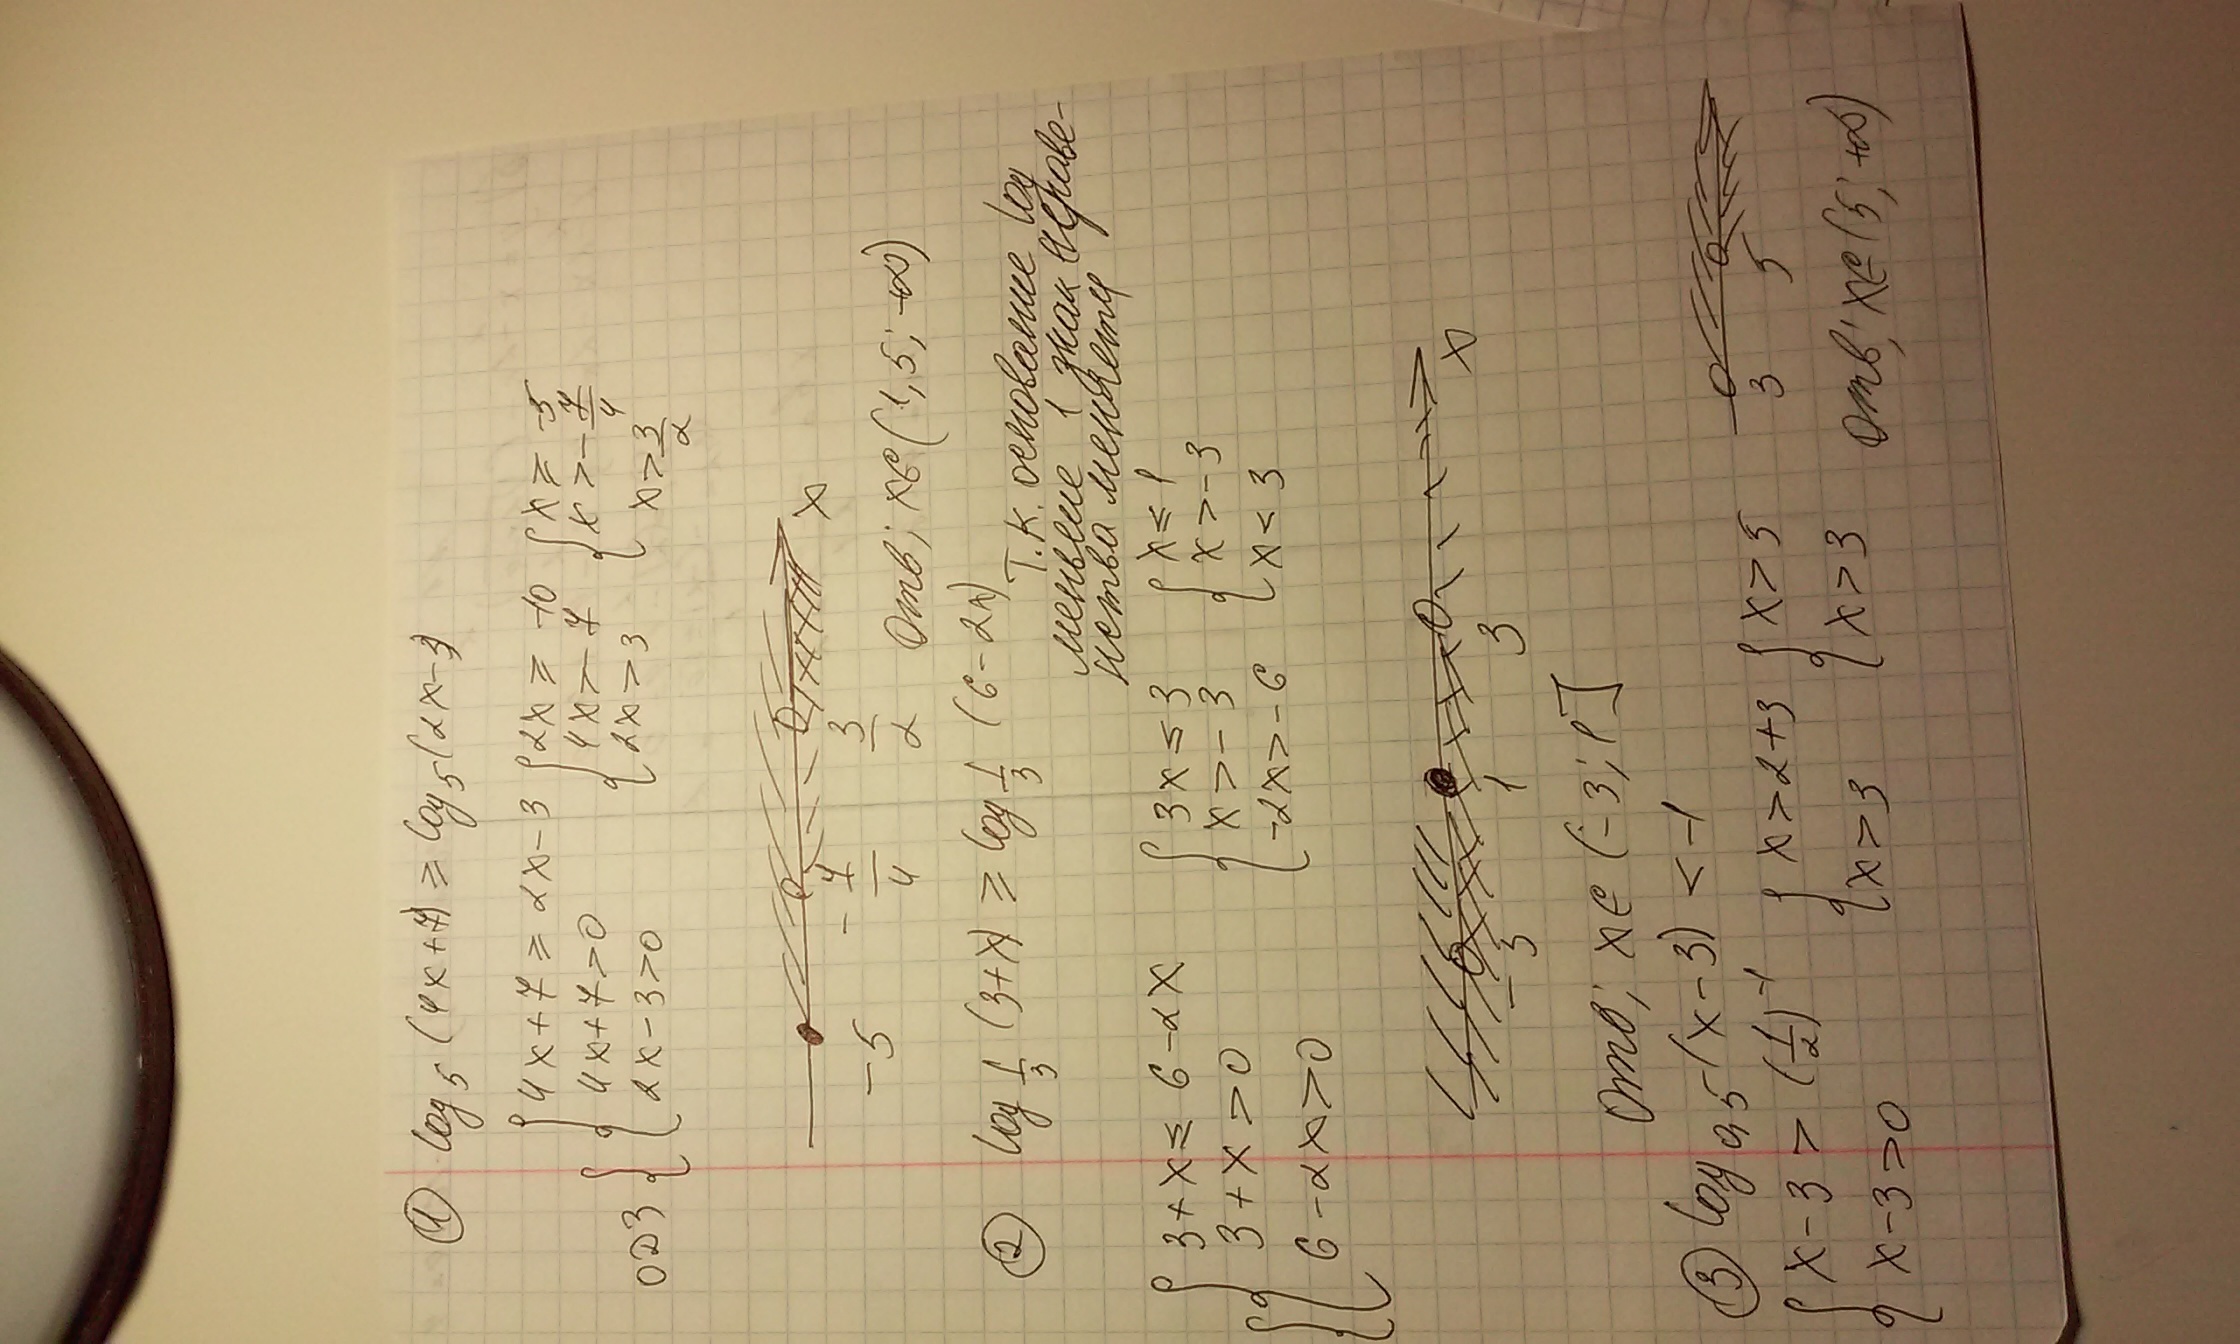 ① log₅(4x+7) ≥ log₅(2x-3)
{4x+7 ≥ 2x-3 {2x ≥ -10 {x ≥ -5
ОДЗ {{4x+7>0 {4x>-7 {x>-7/4
{2x-3>0 {2x>3 {x>3/2
-5 -7/4 3/2 x
Отв; x∈(1,5; +∞)
② log 1/3 (3+x) ≥ log 1/3 (6-2x)
Т.к. основание log
меньше 1 знак нераве-
нства меняем
{3+x ≤ 6-2x {3x ≤ 3 {x ≤ 1
{3+x>0 {x>-3 {x>-3
{6-2x>0 {-2x>-6 {x<3
-3 1 3 x
Отв; x∈(-3; 1]
③ log 0,5 (x-3) < -1
{x-3 > (1/2)⁻¹ {x>2+3 {x>5
{x-3>0 {x>3 {x>3
3 5
Отв; x∈(5; +∞)